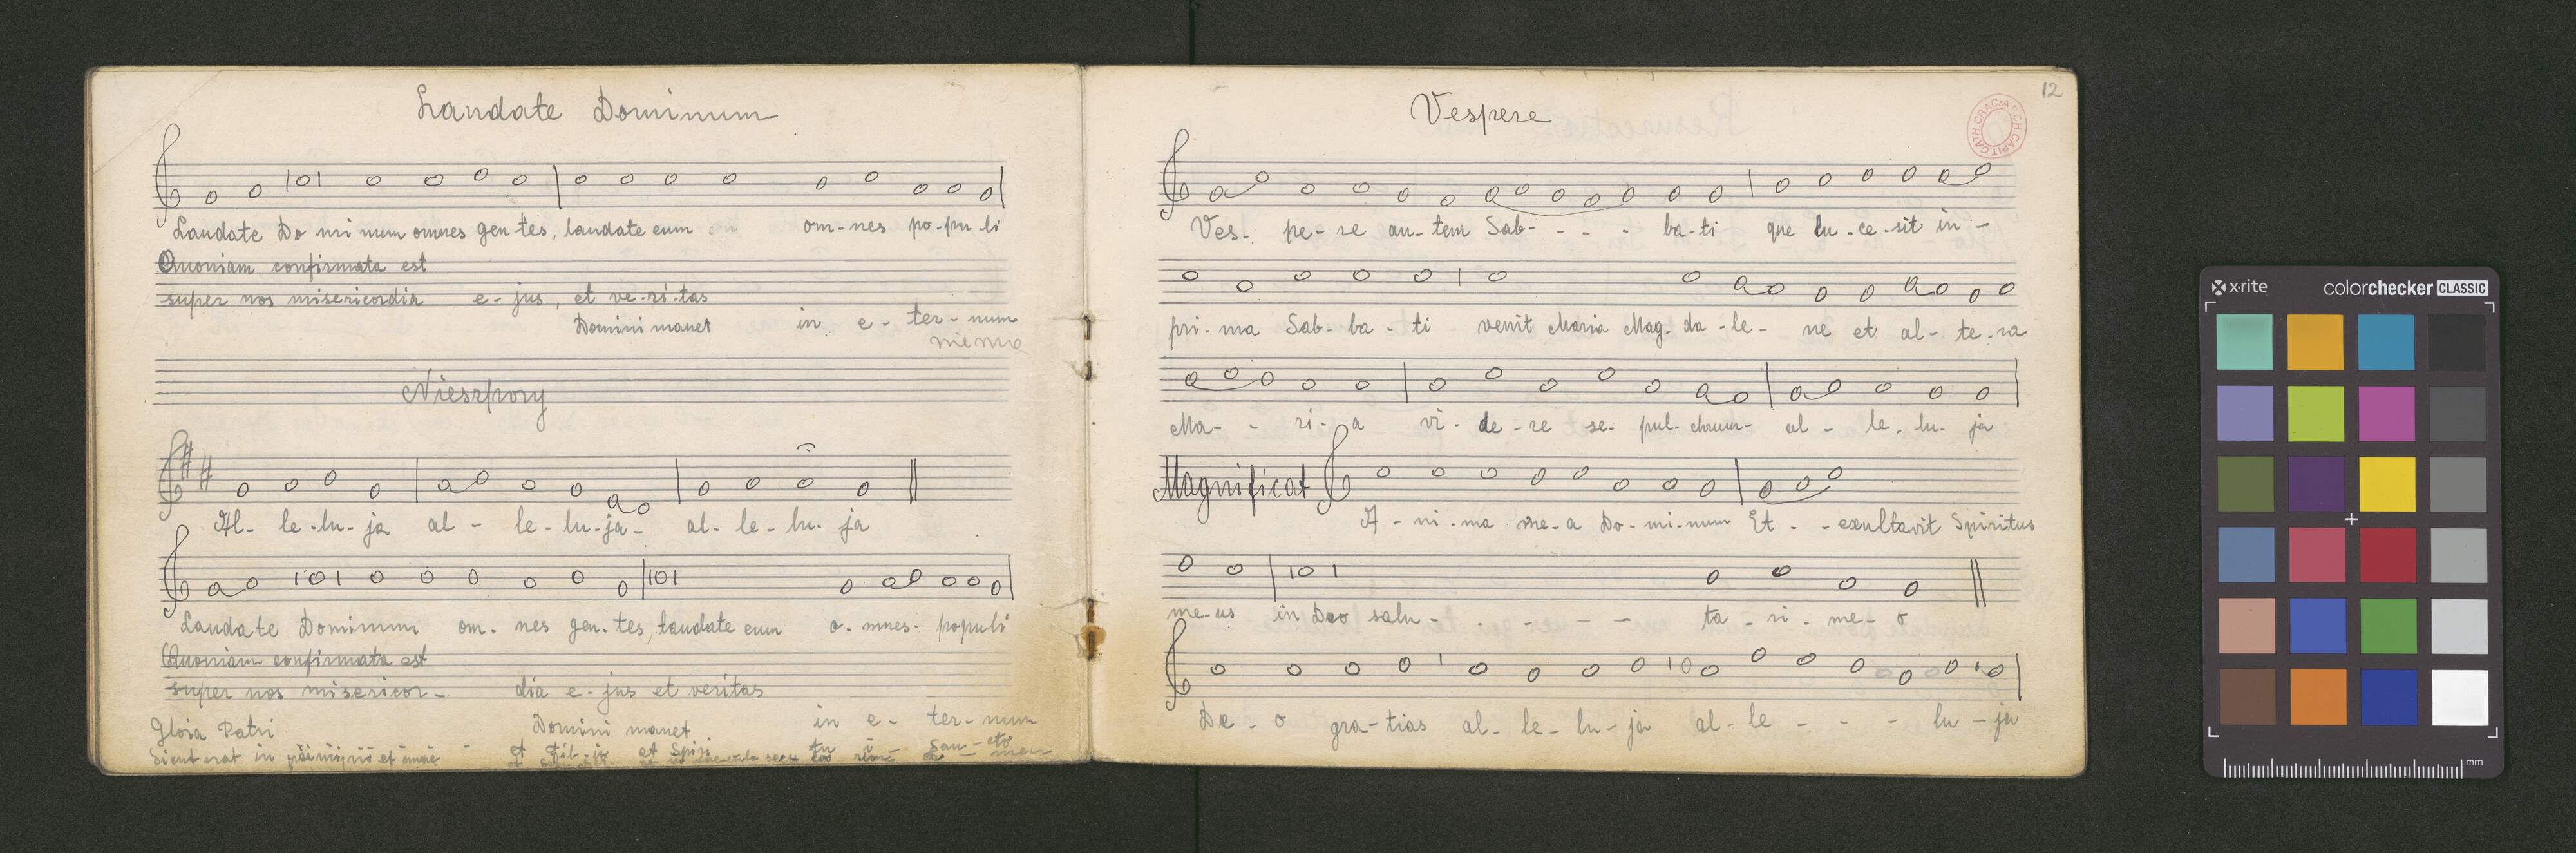 Laudate Dominum
Laudate Do mi num omnes gen tes, laudate eum om-nes po-pu-li
Quoniam confirmata est
super nos misericordia e-jus, et ve-ri-tas
Domini manet in e-ter-num
Nieszpory
Al-le-lu-ja al-le-lu-ja- al-le-lu-ja
Laudate Dominum om-nes gen-tes, laudate eum o-mnes-populi
Quoniam confirmata est
super nos misericor- dia e-jus et veritas
Domini manet in e-ter-num
Gloia Patri et fil-io et Spiri tu i- San-cto
Sicut erat in
12
Vespere
CATH.CRAC.
ARCH.CAPIT.
Ves-pe-re au-tem Sab- - - - ba-ti que lu-ce-sit in-
pri-ma Sab-ba-ti venit Maria Mag-da-le-ne et al-te-ra
Ma- - ri-a vi-de-re se-pul-chrum- al-le-lu-ja
Magnificat
A-ni-ma me-a Do-mi-num Et - - exultavit Spiritus
me-us in Deo salu- - - - - ta-ri-me-o
De-o gra-tias al-le-lu-ja al-le - - - lu-ja
x-rite colorchecker CLASSIC
mm